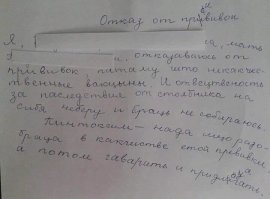 Отказ от прививок
Я, а, мать
а, отказаваюсь от
прививок патаму што некачес-
твенные вакцыны. И отвецтвеность
за паследствие от столбника на
сибя неберу и брацъ не собираюсь.
Пинтоксим — нада ищо разо-
браца в качистве етой прививки
а потом гаварить и придлогать.